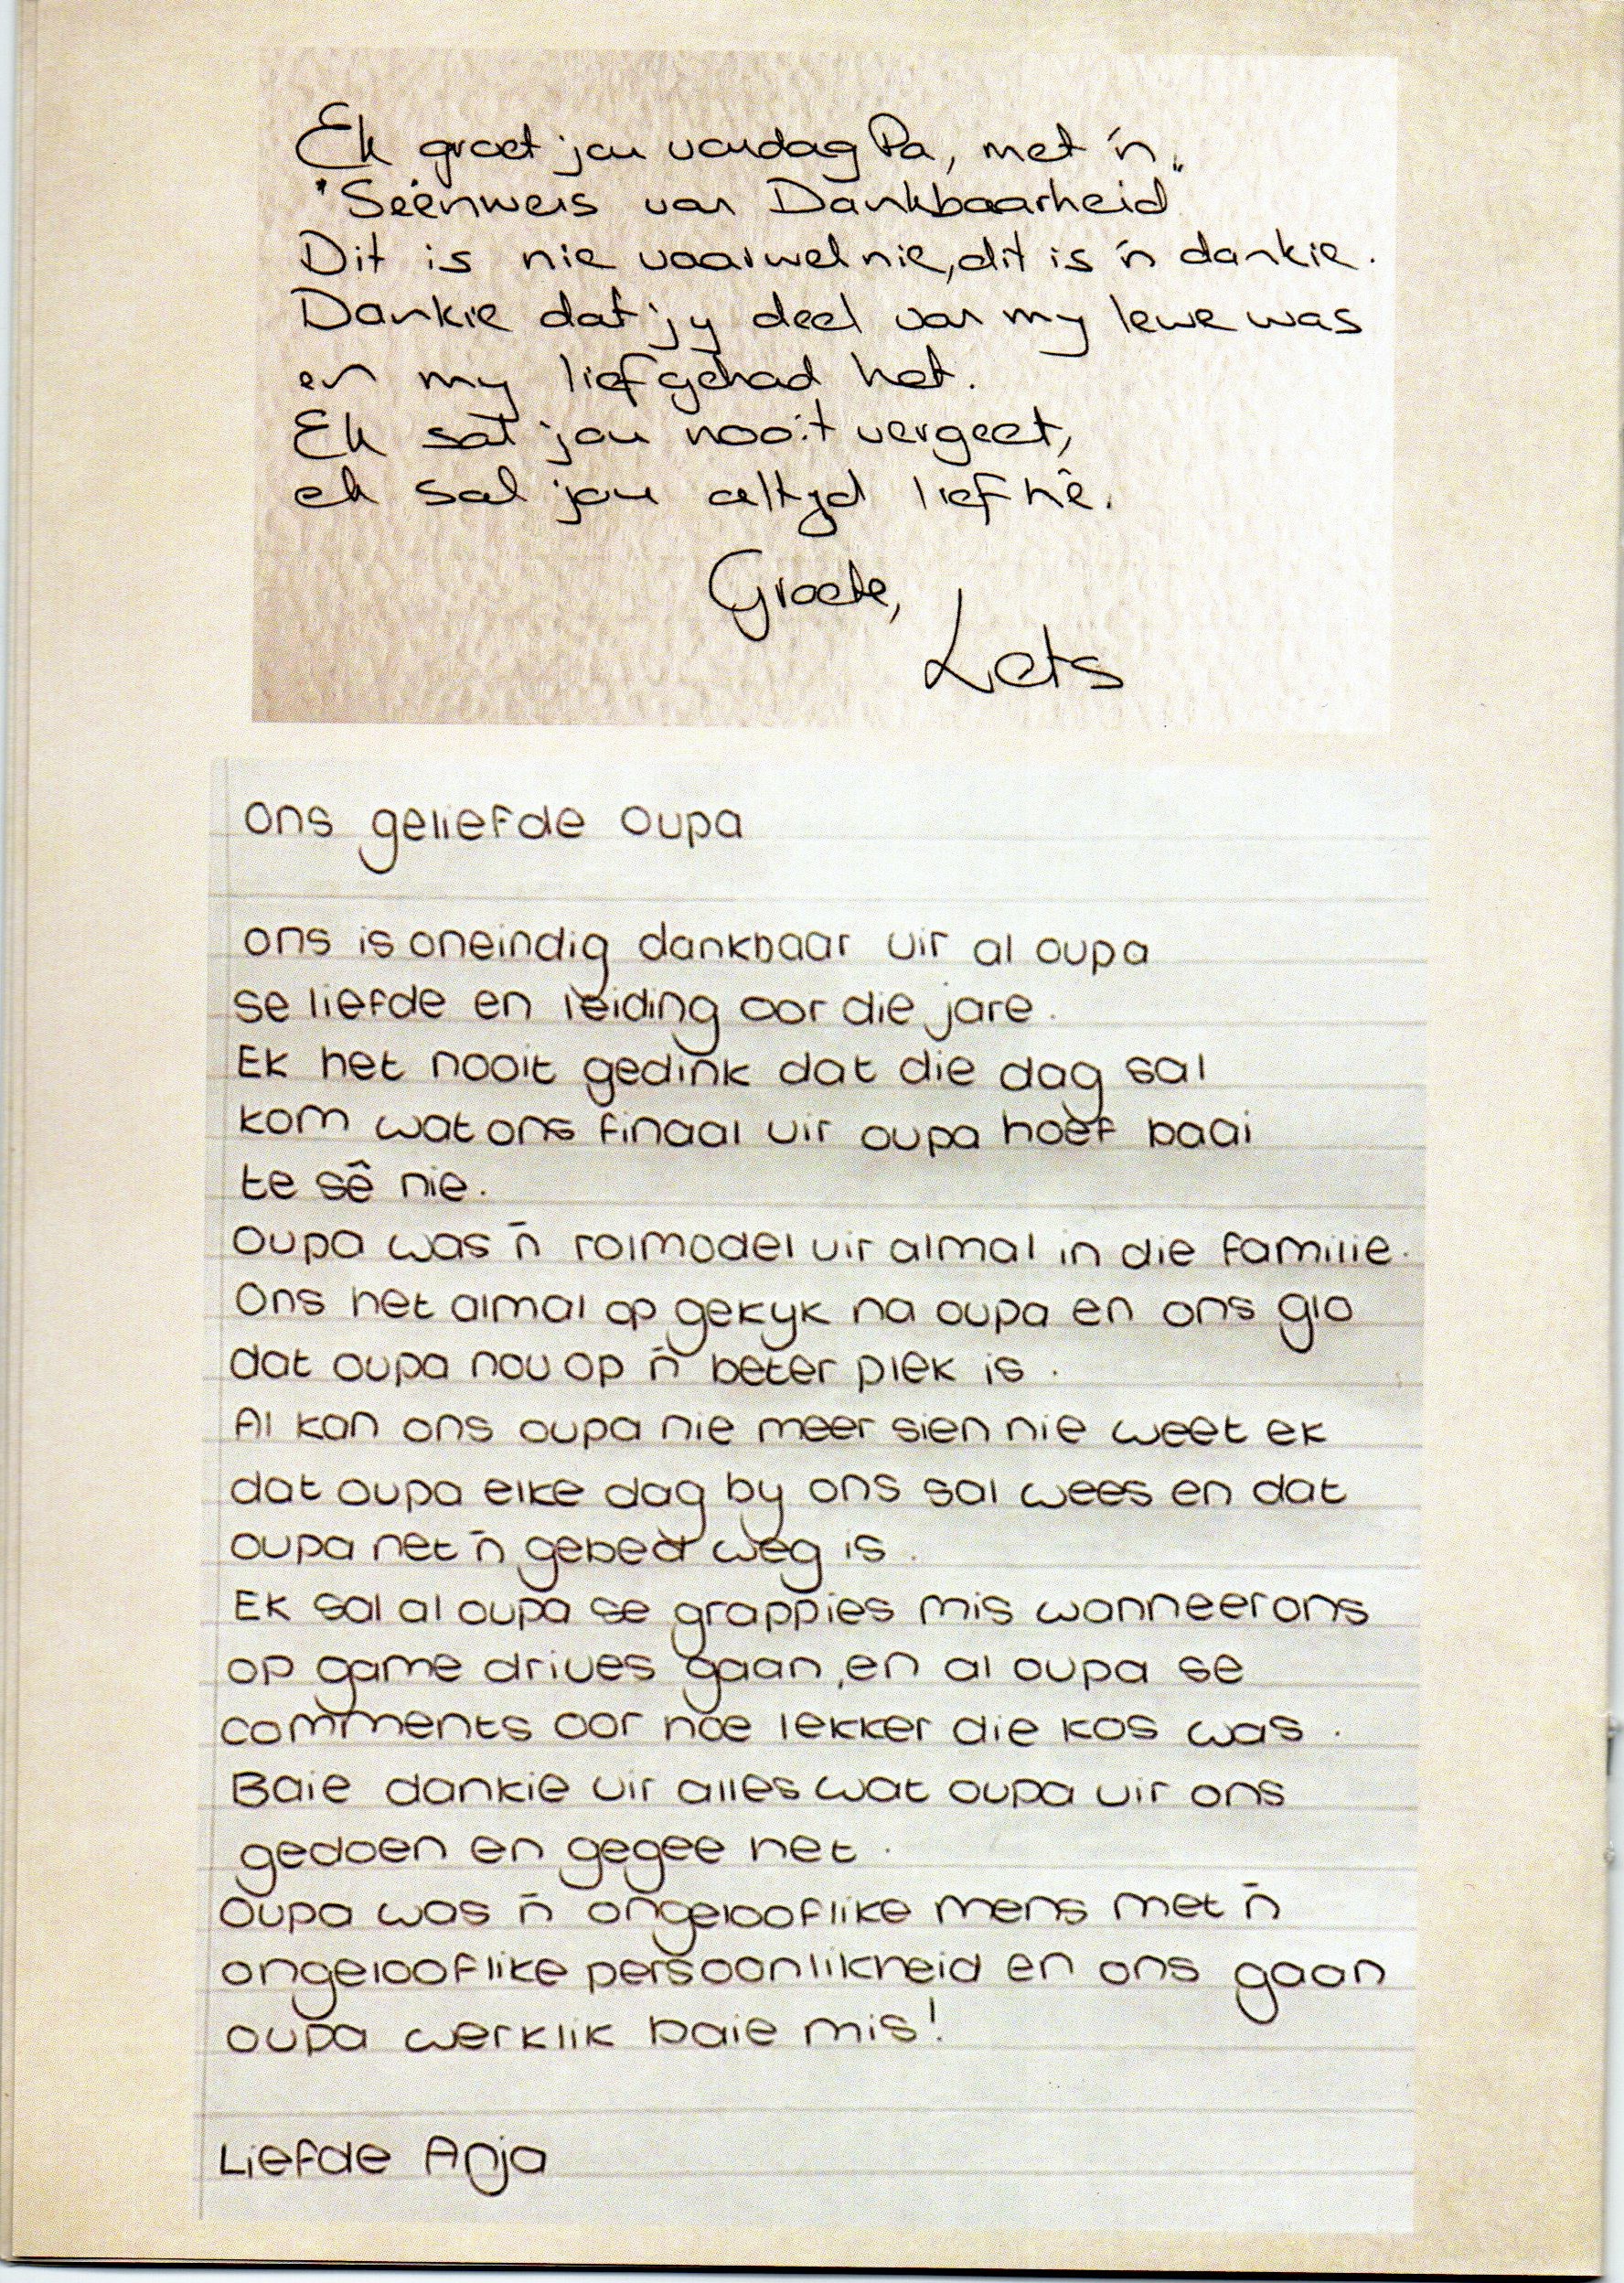 Ek groet jou vandag Pa, met 'n
"Seënwens van Dankbaarheid"
Dit is nie vaarwel nie, dit is 'n dankie.
Dankie dat jy deel van my lewe was
en my liefgehad het.
Ek sal jou nooit vergeet,
ek sal jou altyd liefhê.
Groete,
Lets
Ons geliefde Oupa
Ons is oneindig dankbaar vir al oupa
se liefde en leiding oor die jare.
Ek het nooit gedink dat die dag sal
kom wat ons finaal vir oupa hoef baai
te sê nie.
Oupa was 'n rolmodel vir almal in die familie.
Ons het almal op gekyk na oupa en ons glo
dat oupa nou op 'n beter plek is.
Al kan ons oupa nie meer sien nie weet ek
dat oupa elke dag by ons sal wees en dat
oupa net 'n gebed weg is.
Ek sal al oupa se grappies mis wanneer ons
op game drives gaan, en al oupa se
comments oor hoe lekker die kos was.
Baie dankie vir alles wat oupa vir ons
gedoen en gegee het.
Oupa was 'n ongelooflike mens met 'n
ongelooflike persoonlikheid en ons gaan
oupa werklik baie mis!
Liefde Anja